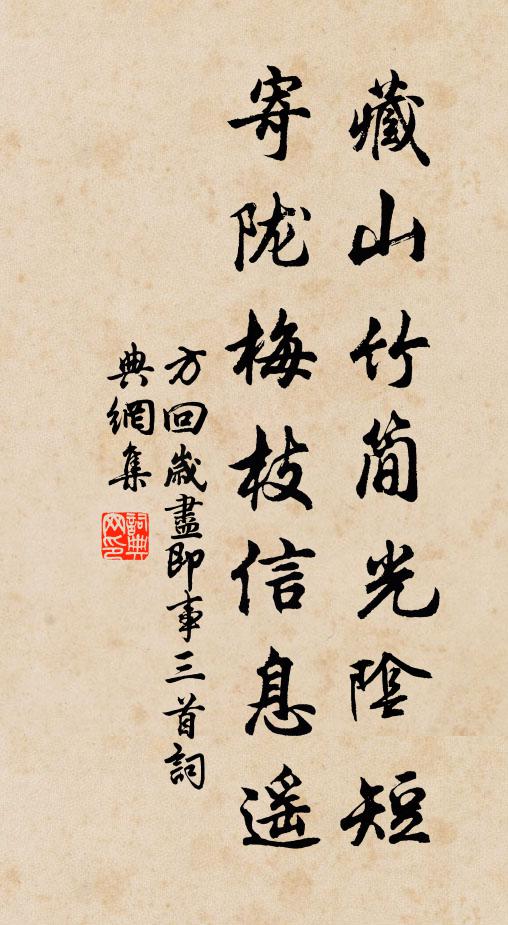 藏山竹简光陰短
寄陇梅枝信息遥
方回歲盡即事三首詞
典網集
詞典網印